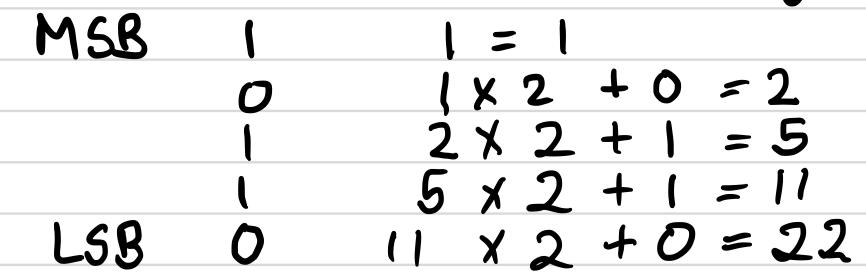 MSB 1 1 = 1
0 1 x 2 + 0 = 2
1 2 x 2 + 1 = 5
1 5 x 2 + 1 = 11
LSB 0 11 x 2 + 0 = 22